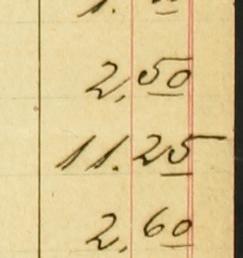 2.50
11.25
2.60